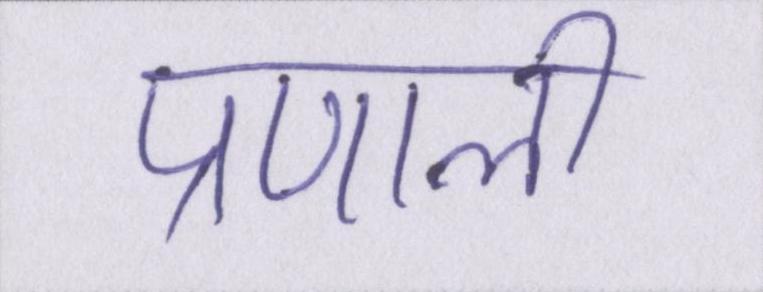 प्रणाली